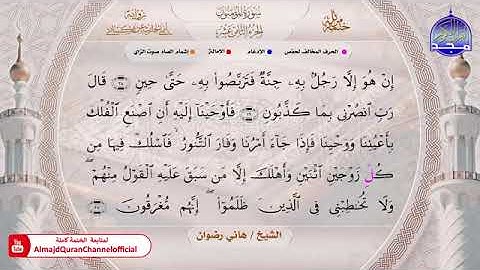 سورة المؤمنون
الجزء الثامن عشر
الحرف المخالف لحفص
الإدغام
الإمالة
إشمام الصاد صوت الزاي
إِنْ هُوَ إِلَّا رَجُلٌ بِهِۦ جِنَّةٌ فَتَرَبَّصُوا۟ بِهِۦ حَتَّىٰ حِينٍ ۝٢٥ قَالَ
رَبِّ ٱنصُرْنِى بِمَا كَذَّبُونِ ۝٢٦ فَأَوْحَيْنَآ إِلَيْهِ أَنِ ٱصْنَعِ ٱلْفُلْكَ
بِأَعْيُنِنَا وَوَحْيِنَا فَإِذَا جَآءَ أَمْرُنَا وَفَارَ ٱلتَّنُّورُ ۙ فَٱسْلُكْ فِيهَا مِن
كُلِّ زَوْجَيْنِ ٱثْنَيْنِ وَأَهْلَكَ إِلَّا مَن سَبَقَ عَلَيْهِ ٱلْقَوْلُ مِنْهُمْ ۖ
وَلَا تُخَـٰطِبْنِى فِى ٱلَّذِينَ ظَلَمُوٓا۟ ۖ إِنَّهُم مُّغْرَقُونَ ۝٢٧
الشيخ / هاني رضوان
لمتابعة الختمة كاملة
AlmajdQuranChannelofficial
You
Tube